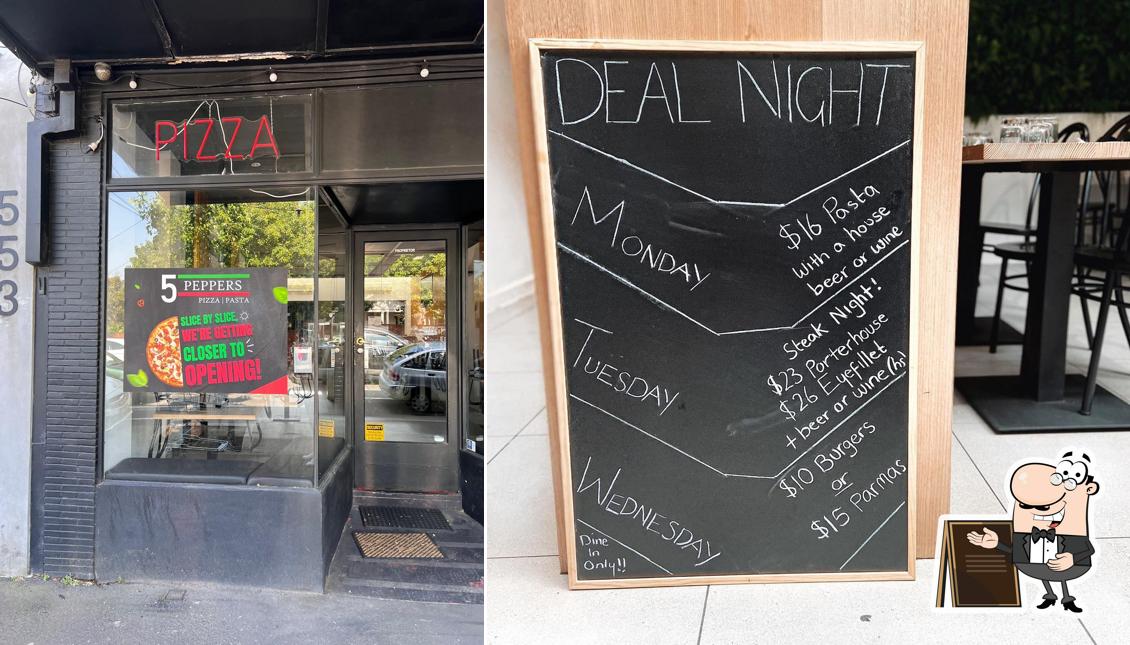 PIZZA
553
PROPRIETOR
5 PEPPERS
PIZZA | PASTA
SLICE BY SLICE,
WE'RE GETTING
CLOSER TO
OPENING!
SECURITY
DEAL NIGHT
MONDAY
$16 Pasta
with a house
beer or wine
TUESDAY
Steak Night!
$23 Porterhouse
$26 Eyefillet
+ beer or wine (hs)
WEDNESDAY
$10 Burgers
or
$15 Parmas
Dine
In
Only!!